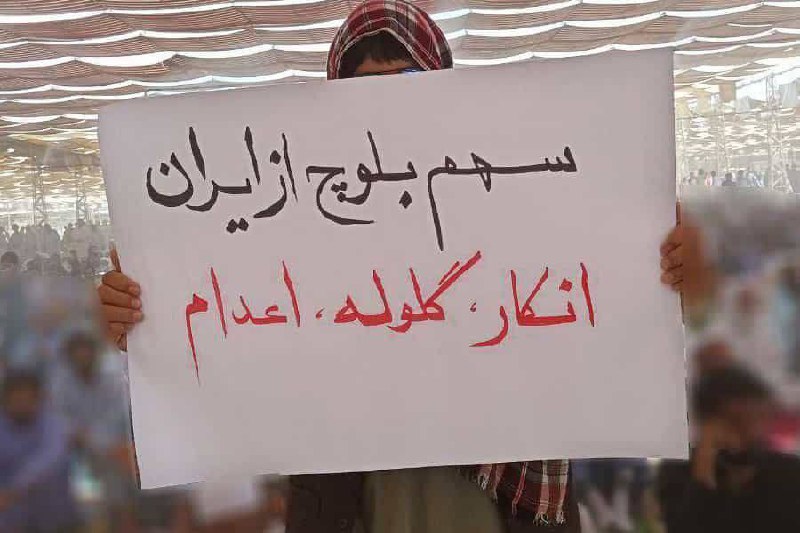 سهم بلوچ از ایران
انکار، گلوله، اعدام